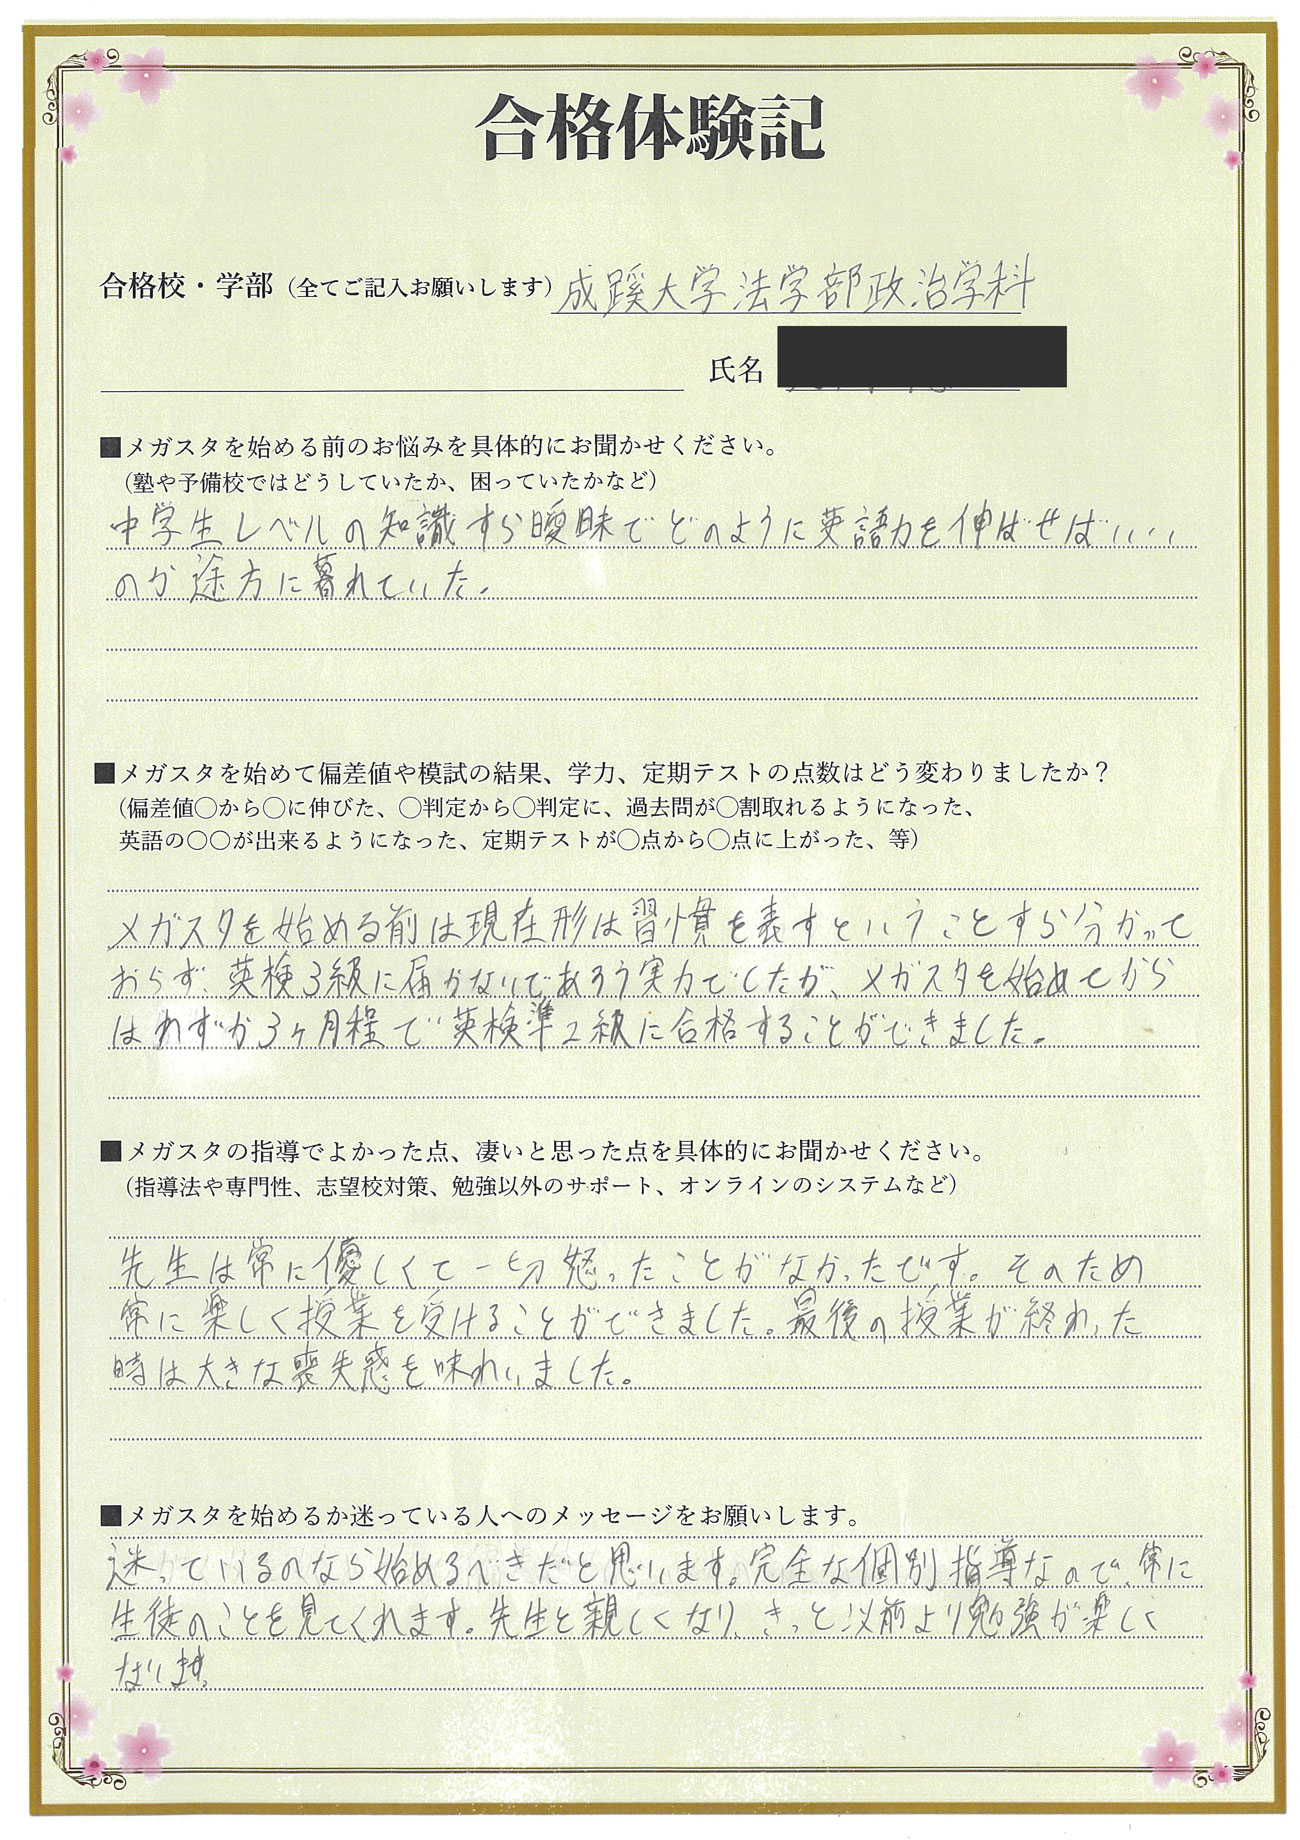 合格体験記
合格校・学部（全てご記入お願いします）成蹊大学法学部政治学科
氏名
■メガスタを始める前のお悩みを具体的にお聞かせください。
（塾や予備校ではどうしていたか、困っていたかなど）
中学生レベルの知識すら曖昧でどのように英語力を伸ばせばいい
のか途方に暮れていた。
■メガスタを始めて偏差値や模試の結果、学力、定期テストの点数はどう変わりましたか？
（偏差値〇から〇に伸びた、〇判定から〇判定に、過去問が〇割取れるようになった、
英語の〇〇が出来るようになった、定期テストが〇点から〇点に上がった、等）
メガスタを始める前は現在形は習慣を表すということすら分かって
おらず、英検3級に届かないであろう実力でしたが、メガスタを始めてから
はわずか3ヶ月程で英検準2級に合格することができました。
■メガスタの指導でよかった点、凄いと思った点を具体的にお聞かせください。
（指導法や専門性、志望校対策、勉強以外のサポート、オンラインのシステムなど）
先生は常に優しくて一切怒ったことがなかったです。そのため
常に楽しく授業を受けることができました。最後の授業が終わった
時は大きな喪失感を味わいました。
■メガスタを始めるか迷っている人へのメッセージをお願いします。
迷っているのなら始めるべきだと思います。完全な個別指導なので、常に
生徒のことを見てくれます。先生と親しくなり、きっと以前より勉強が楽しく
なります。